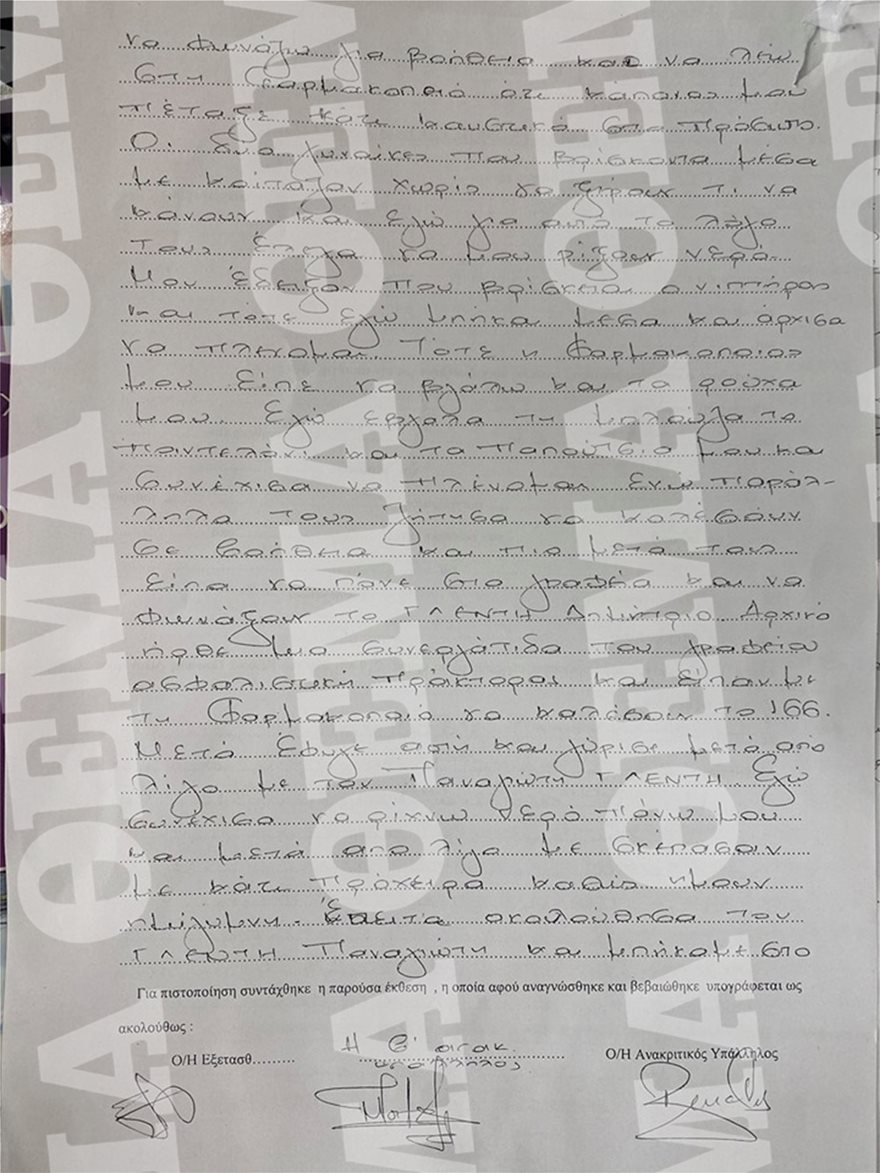 να φωνάζω για βοήθεια και να λέω
στη φαρμακοποιό ότι κάποιος μου
πέταξε κάτι καυστικό στο πρόσωπο.
Οι δυο γυναίκες που βρίσκοντα μέσα
με κοίταζαν χωρίς να ξέρουν τι να
κάνουν και εγώ για αυτό το λόγο
τους έλεγα να μου ρίξουν νερό.
Μου έδειξαν που βρίσκεται ο νιπτήρας
και τότε εγώ μπήκα μέσα και άρχισα
να πλένομαι. Τότε η φαρμακοποιος
μου είπε να βγάλω και τα ρούχα
μου. Εγώ έβγαλα τη μπλούζα το
παντελόνι και τα παπούτσια μου και
συνέχισα να πλένομαι ενώ παράλ-
ληλα τους ζήτησα να καλέσουν
σε βοήθεια και πιο μετά τους
είπα να πάνε στο γραφείο και να
φωνάξουν το ΓΛΕΝΤΗ Δημήτριο. Αρχικά
ήρθε μια συνεργάτιδα του γραφείου
ασφαλιστική πράκτορας και είπαν με
τη φαρμακοποιό να καλέσουν το 166.
Μετά έφυγε αυτή και γύρισε μετά από
λίγο με τον Παναγιώτη ΓΛΕΝΤΗ. Εγώ
συνέχισα να ρίχνω νερό πάνω μου
και μετά από λίγο με σκέπασαν
με κάτι πρόχειρα καθώς ήμουν
ημίγυμνη. Έπειτα ακολούθησα τον
ΓΛΕΝΤΗ Παναγιώτη και μπήκαμε στο
Για πιστοποίηση συντάχθηκε η παρούσα έκθεση , η οποία αφού αναγνώσθηκε και βεβαιώθηκε υπογράφεται ως
ακολούθως :
Ο/Η Εξετασθ......... Η Β' ανακ. υπάλληλος Ο/Η Ανακριτικός Υπάλληλος
ΘΕΜΑ ΘΕΜΑ ΘΕΜΑ